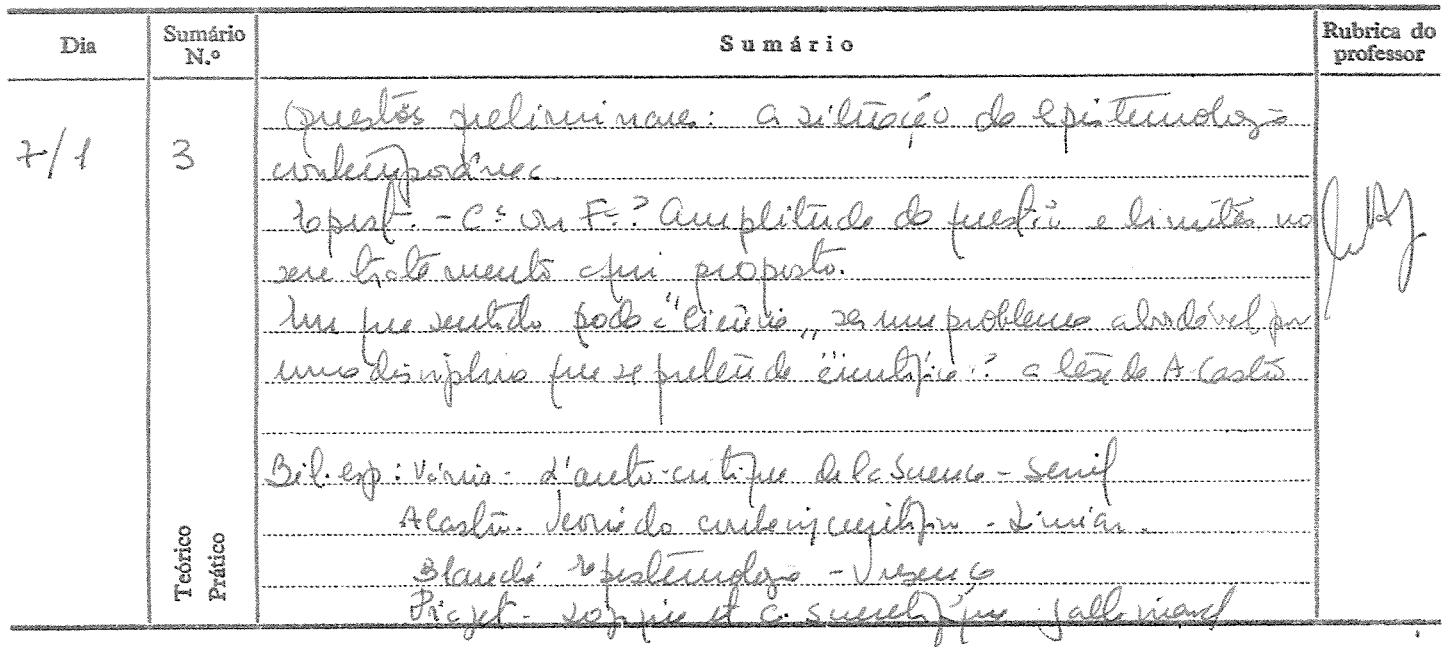 Dia Sumário N.º Sumário Rubrica do professor
7/1 3 Questões preliminares: a situação da epistemologia
contemporânea.
Epist. - Cª ou Fª? Amplitude da questão e limites no
seu tratamento aqui proposto.
Em que sentido pode a "ciência" ser um problema abordável por
uma disciplina que se pretende "científica"? a tese de A. Castro
Bibl. esp: Vários - L'auto-critique de la Science - Seuil
A Castro - Teoria do conhecimento - Limiar.
Blanché Epistemologia - Presença
Piaget - Logique et C. scientifique - Gallimard
Teórico
Prático